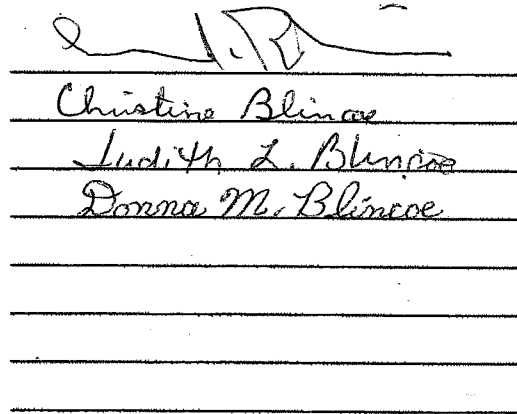 Christine Blincoe
Judith L. Blincoe
Donna M. Blincoe